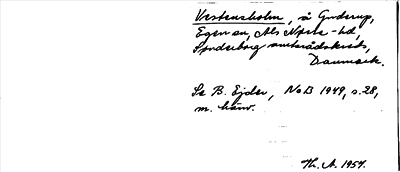 Vestensholm, å Guderup,
Egen sn, Als Nørre-hd,
Sønderborg amtsrådskreds,
Danmark.
Se B. Ejder, NoB 1949, s. 28,
m. hänv.
Th. A. 1954.